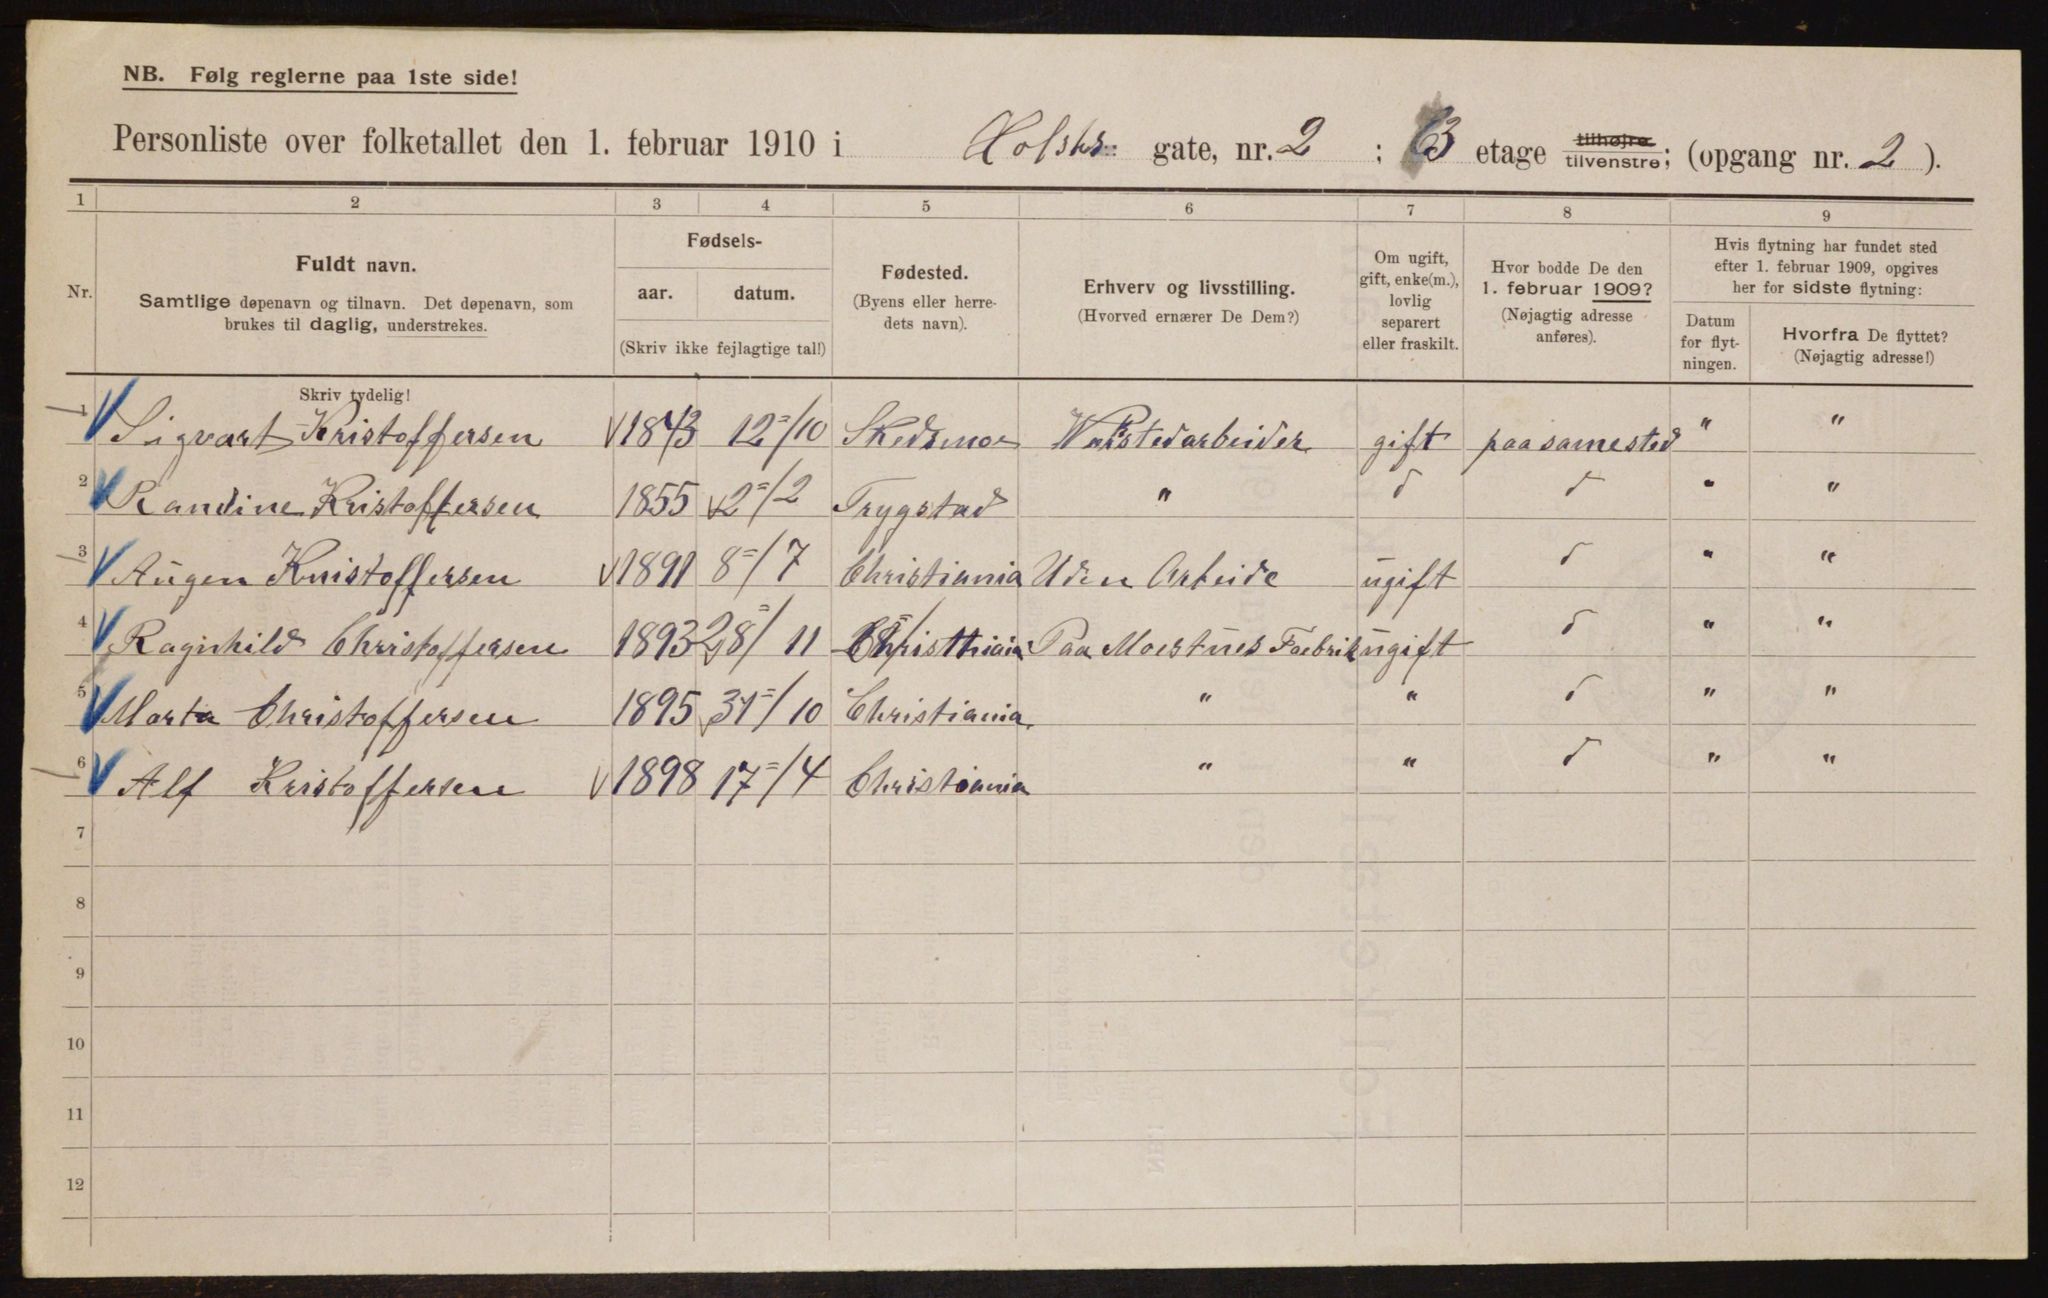 NB. Følg reglerne paa 1ste side!
Personliste over folketallet den 1. februar 1910 i Holsts gate, nr. 2 ; 3 etage tilhøjre tilvenstre; (opgang nr. 2 ).
1 2 3 4 5 6 7 8 9
Nr.
Fuldt navn.
Samtlige døpenavn og tilnavn. Det døpenavn, som
brukes til daglig, understrekes.
Skriv tydelig!
Fødsels-
aar. datum.
(Skriv ikke fejlagtige tal!)
Fødested.
(Byens eller herre-
dets navn).
Erhverv og livsstilling.
(Hvorved ernærer De Dem?)
Om ugift,
gift, enke(m.),
lovlig
separert
eller fraskilt.
Hvor bodde De den
1. februar 1909?
(Nøjagtig adresse
anføres).
Hvis flytning har fundet sted
efter 1. februar 1909, opgives
her for sidste flytning:
Datum
for flyt-
ningen.
Hvorfra De flyttet?
(Nøjagtig adresse!)
1 Sigvart Kristoffersen 1843 12=/10 Skedsmoe gift paa samested " "
2 Randine Kristoffersen 1855 2=/2 Trygstad " d d " "
3 Augen Kristoffersen 1891 8=/7 Christiania Uden Arbeide ugift d " "
4 Ragnhild Christoffersen 1893 28=/11 Paa Moestues Faebrik ugift d " "
5 Marta Christoffersen 1895 31=/10 Christiania " " d " "
6 Alf Kristoffersen 1898 17=/4 Christiania " " d " "
7
8
9
10
11
12